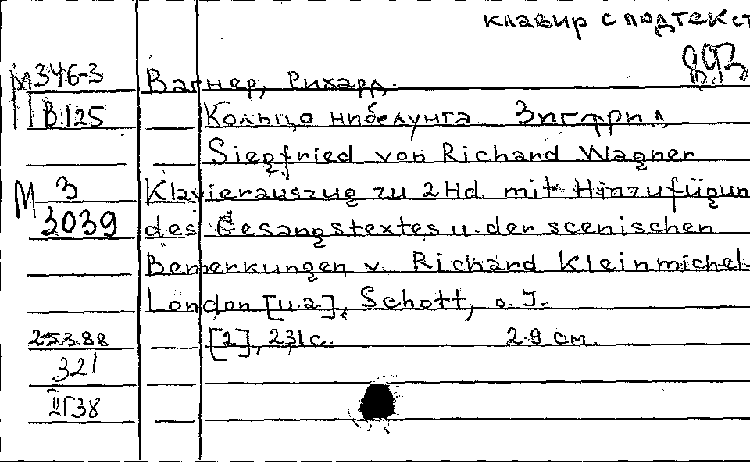 клавир с подтекст
893
М 346-3 Вагнер, Рихард.
В.125 Кольцо нибелунга Зигфрид
Siegfried von Richard Wagner
М 3 Klavierauszug zu 2 Hd. mit Hinzufügun
3039 des Gesangstextes u. der scenischen
Bemerkungen v. Richard Kleinmichel
London [u.a], Schott, o. J.
253.88 [2], 231с. 29 см.
321